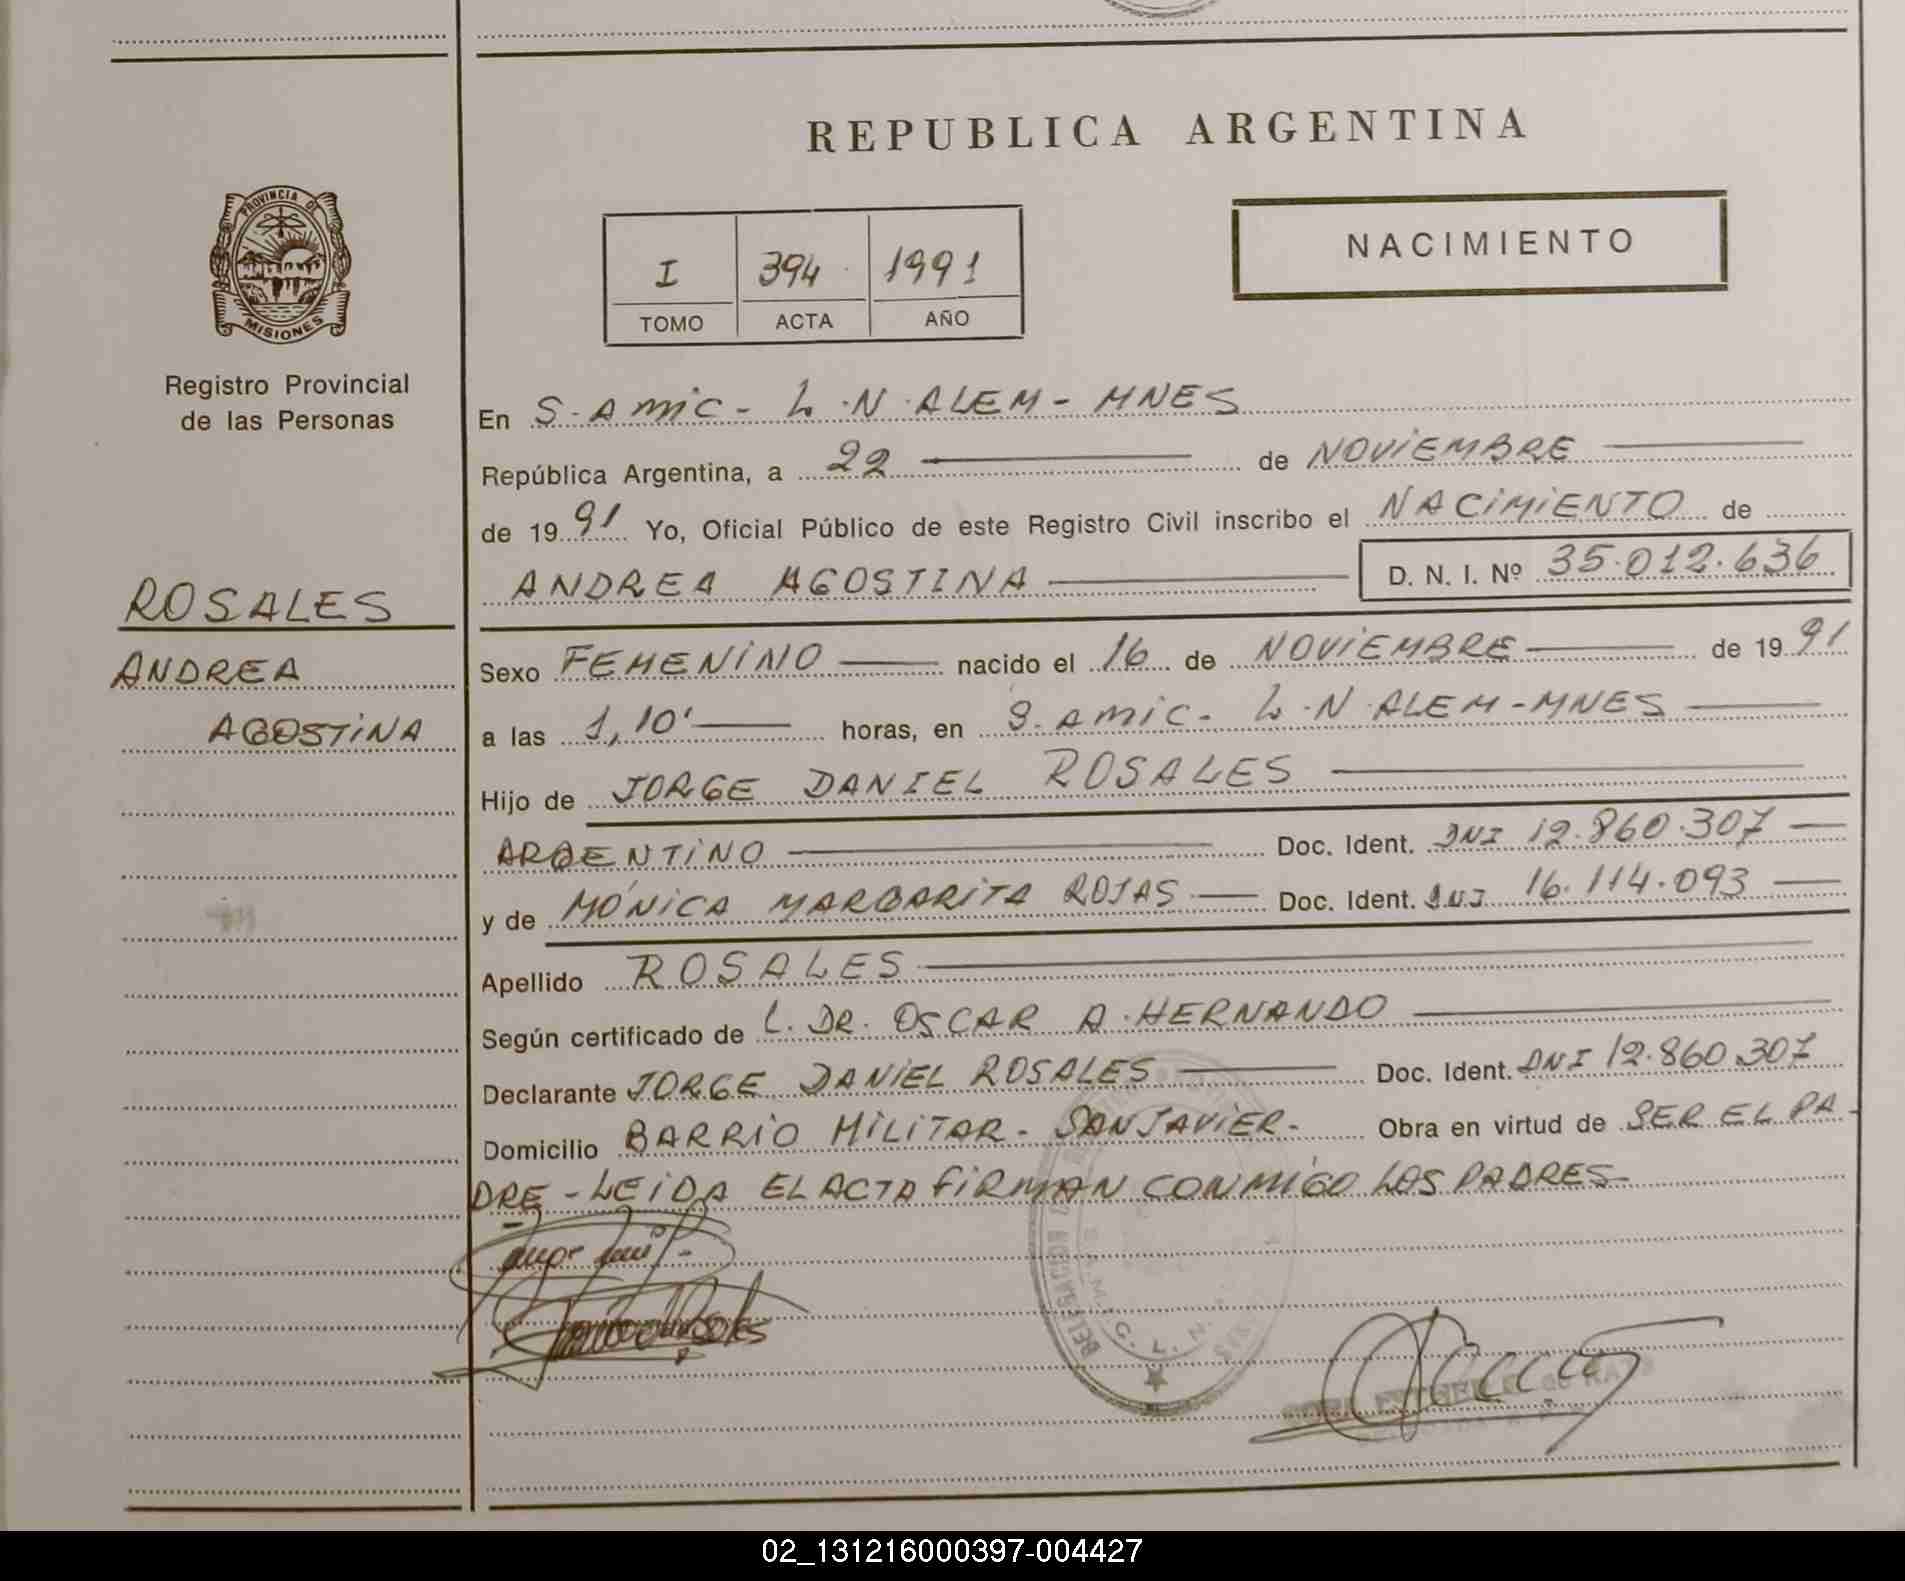 REPUBLICA ARGENTINA
PROVINCIA DE
MISIONES
Registro Provincial
de las Personas
I 394 1991
TOMO ACTA AÑO
NACIMIENTO
En S. AMIC - L. N. ALEM - MNES
República Argentina, a 22 de NOVIEMBRE
de 1991 Yo, Oficial Público de este Registro Civil inscribo el NACIMIENTO de
ANDREA AGOSTINA D. N. I. Nº 35.012.636
ROSALES
ANDREA
AGOSTINA
Sexo FEMENINO nacido el 16 de NOVIEMBRE de 1991
a las 1,10' horas, en S. AMIC - L. N. ALEM - MNES
Hijo de JORGE DANIEL ROSALES
ARGENTINO Doc. Ident. DNI 12.860.307
y de MÓNICA MARGARITA ROJAS Doc. Ident. DNI 16.114.093
Apellido ROSALES
Según certificado de L. DR. OSCAR A. HERNANDO
Declarante JORGE DANIEL ROSALES Doc. Ident. DNI 12.860.307
Domicilio BARRIO MILITAR - SAN JAVIER - Obra en virtud de SER EL PA-
DRE - LEIDA EL ACTA FIRMAN CONMIGO LOS PADRES-
02_131216000397-004427